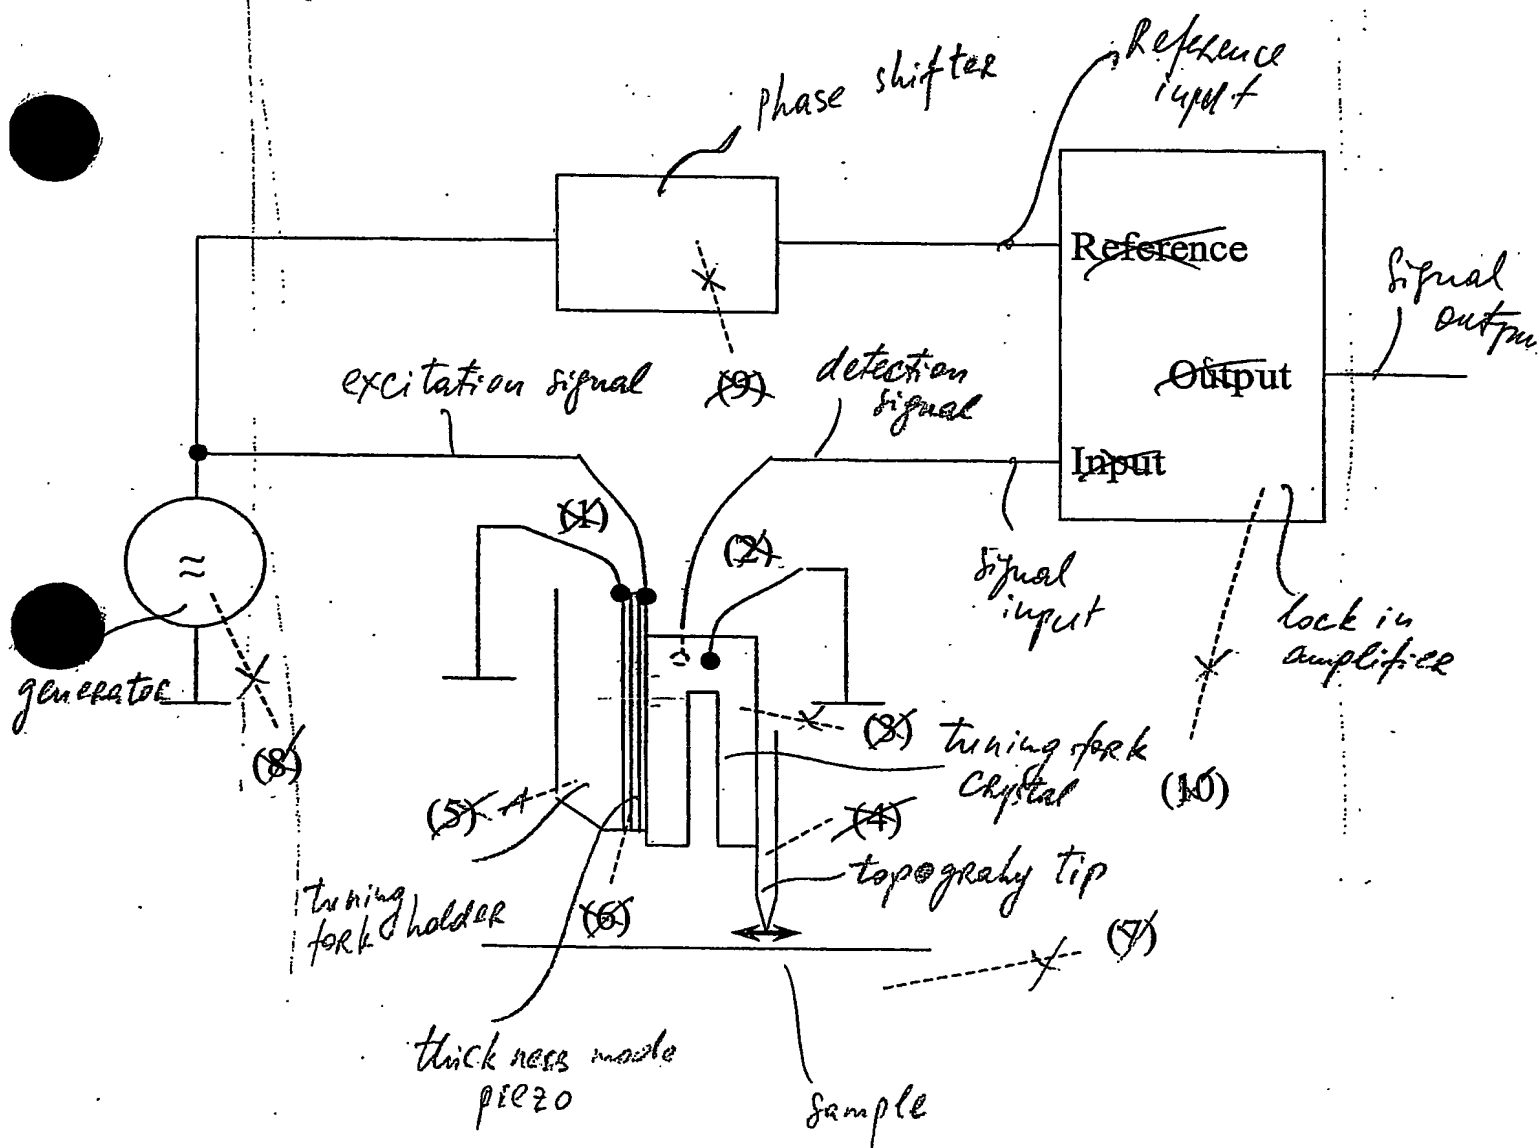 phase shifter
Reference
input
Reference
Signal
output
Output
excitation signal
(9)
detection
signal
Input
(1)
(2)
signal
input
lock in
amplifier
≈
generator
(8)
(3)
tuning fork
crystal
(10)
(5)
(4)
topograhy tip
tuning
fork holder
(6)
(7)
thick ness mode
piezo
sample